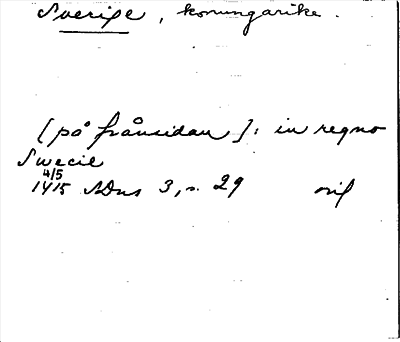 Sverige, konungarike.
[på frånsidan]: in regno
Swecie
4/5
1415 SDns 3, s. 29 orig